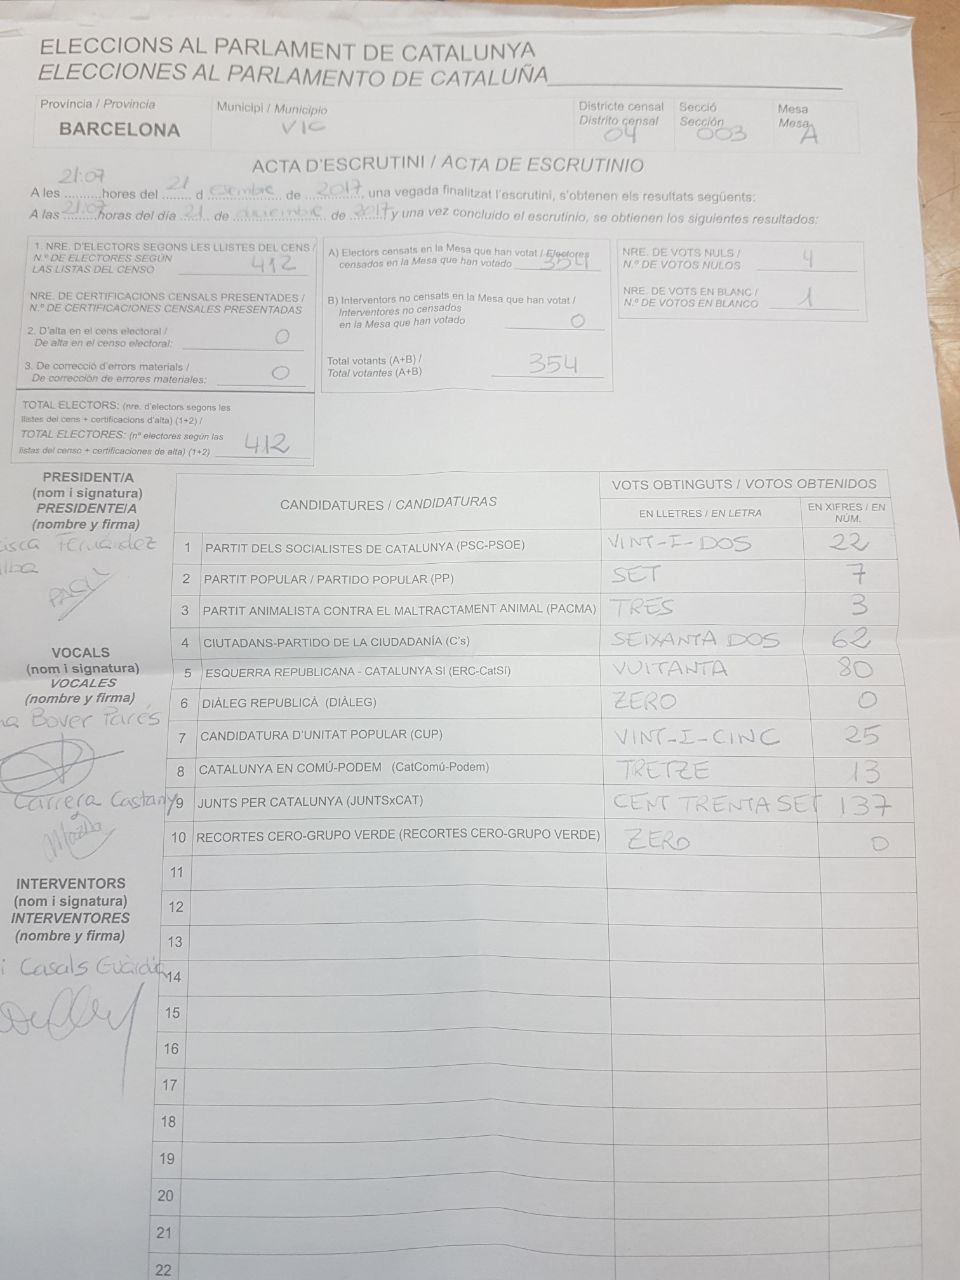 ELECCIONS AL PARLAMENT DE CATALUNYA
ELECCIONES AL PARLAMENTO DE CATALUÑA
Província / Provincia
BARCELONA
Municipi / Municipio
VIC
Districte censal
Distrito censal
04
Secció
Sección
003
Mesa
Mesa
A
ACTA D'ESCRUTINI / ACTA DE ESCRUTINIO
A les 21:07 hores del 21 d esembre de 2017, una vegada finalitzat l'escrutini, s'obtenen els resultats següents:
A las 21:07 horas del día 21 de diciembre de 2017 y una vez concluido el escrutinio, se obtienen los siguientes resultados:
1. NRE. D'ELECTORS SEGONS LES LLISTES DEL CENS /
N.º DE ELECTORES SEGÚN
LAS LISTAS DEL CENSO 412
NRE. DE CERTIFICACIONS CENSALS PRESENTADES /
N.º DE CERTIFICACIONES CENSALES PRESENTADAS
2. D'alta en el cens electoral /
De alta en el censo electoral: 0
3. De correcció d'errors materials /
De corrección de errores materiales: 0
TOTAL ELECTORS: (nre. d'electors segons les
llistes del cens + certificacions d'alta) (1+2) /
TOTAL ELECTORES: (nº electores según las
listas del censo + certificaciones de alta) (1+2) 412
A) Electors censats en la Mesa que han votat / Electores
censados en la Mesa que han votado 354
B) Interventors no censats en la Mesa que han votat /
Interventores no censados
en la Mesa que han votado 0
Total votants (A+B) /
Total votantes (A+B) 354
NRE. DE VOTS NULS /
N.º DE VOTOS NULOS 4
NRE. DE VOTS EN BLANC /
N.º DE VOTOS EN BLANCO 1
PRESIDENT/A
(nom i signatura)
PRESIDENTE/A
(nombre y firma)
isca Fernández
lba
VOCALS
(nom i signatura)
VOCALES
(nombre y firma)
na Bover Parés
Carrera Castany
INTERVENTORS
(nom i signatura)
INTERVENTORES
(nombre y firma)
i Casals Guàrdia
CANDIDATURES / CANDIDATURAS
VOTS OBTINGUTS / VOTOS OBTENIDOS
EN LLETRES / EN LETRA
EN XIFRES / EN
NÚM.
1 PARTIT DELS SOCIALISTES DE CATALUNYA (PSC-PSOE) VINT-I-DOS 22
2 PARTIT POPULAR / PARTIDO POPULAR (PP) SET 7
3 PARTIT ANIMALISTA CONTRA EL MALTRACTAMENT ANIMAL (PACMA) TRES 3
4 CIUTADANS-PARTIDO DE LA CIUDADANÍA (C's) SEIXANTA DOS 62
5 ESQUERRA REPUBLICANA - CATALUNYA SI (ERC-CatSí) VUITANTA 80
6 DIÀLEG REPUBLICÀ (DIÀLEG) ZERO 0
7 CANDIDATURA D'UNITAT POPULAR (CUP) VINT-I-CINC 25
8 CATALUNYA EN COMÚ-PODEM (CatComú-Podem) TRETZE 13
9 JUNTS PER CATALUNYA (JUNTSxCAT) CENT TRENTA SET 137
10 RECORTES CERO-GRUPO VERDE (RECORTES CERO-GRUPO VERDE) ZERO 0
11
12
13
14
15
16
17
18
19
20
21
22